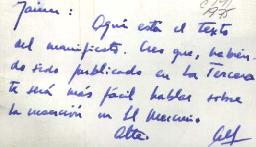 Jaime:
Aquí está el texto
del manifiesto. Creo que, habién-
do sido publicado en La Tercera
te será más fácil hablar sobre
la inserción en El Mercurio
Atte.